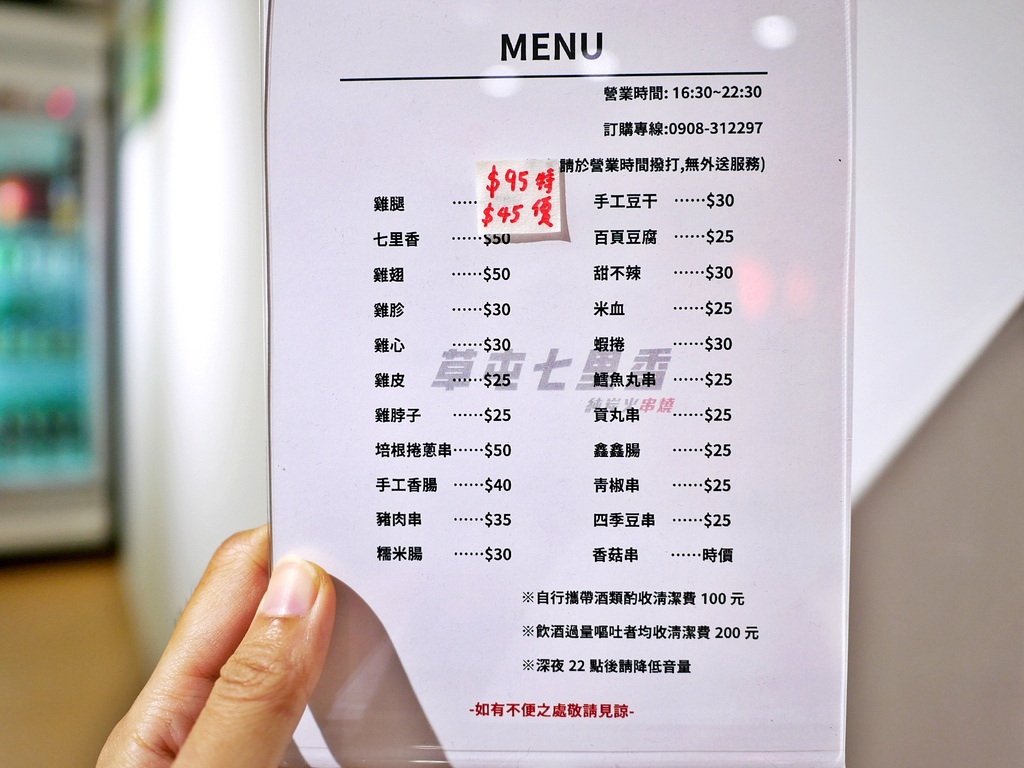 MENU
營業時間: 16:30~22:30
訂購專線:0908-312297
請於營業時間撥打,無外送服務)
$95 特
$45 優
雞腿 ……
七里香 ……$50
雞翅 ……$50
雞胗 ……$30
雞心 ……$30
雞皮 ……$25
雞脖子 ……$25
培根捲蔥串……$50
手工香腸 ……$40
豬肉串 ……$35
糯米腸 ……$30
手工豆干 ……$30
百頁豆腐 ……$25
甜不辣 ……$30
米血 ……$25
蝦捲 ……$30
鱈魚丸串 ……$25
貢丸串 ……$25
鑫鑫腸 ……$25
青椒串 ……$25
四季豆串 ……$25
香菇串 ……時價
草屯七里香
純炭火串燒
※自行攜帶酒類酌收清潔費 100 元
※飲酒過量嘔吐者均收清潔費 200 元
※深夜 22 點後請降低音量
-如有不便之處敬請見諒-